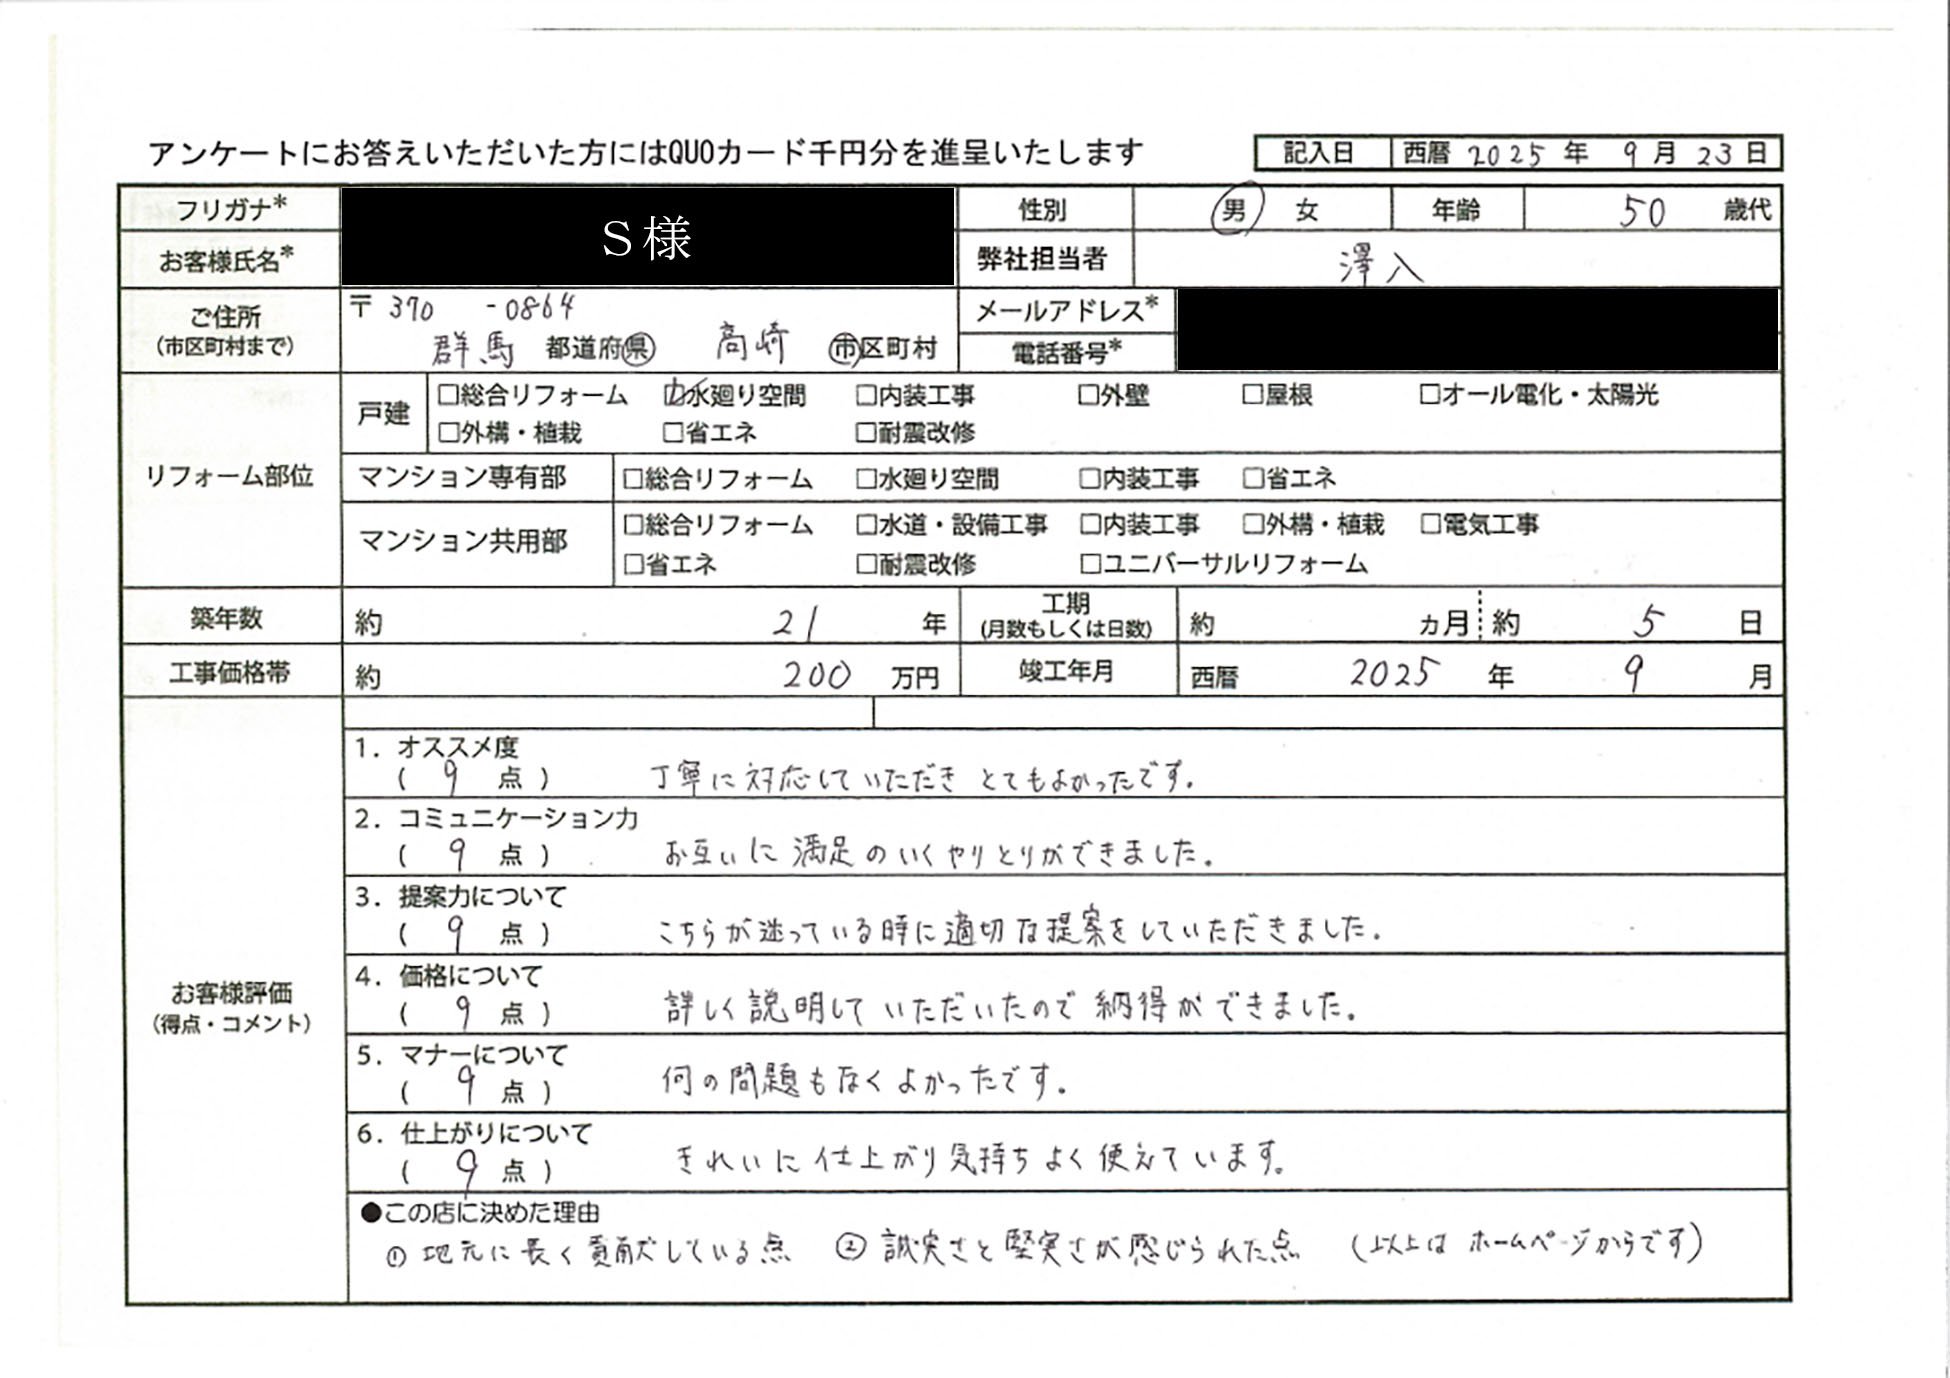 アンケートにお答えいただいた方にはQUOカード千円分を進呈いたします
記入日 西暦 2025 年 9 月 23 日
フリガナ* S様 性別 男 女 年齢 50 歳代
お客様氏名* 弊社担当者 澤入
ご住所 (市区町村まで) 〒 370 -0864 メールアドレス*
群馬 都道府県 高崎 市区町村 電話番号*
リフォーム部位
戸建 □総合リフォーム ☑水廻り空間 □内装工事 □外壁 □屋根 □オール電化・太陽光
□外構・植栽 □省エネ □耐震改修
マンション専有部 □総合リフォーム □水廻り空間 □内装工事 □省エネ
マンション共用部 □総合リフォーム □水道・設備工事 □内装工事 □外構・植栽 □電気工事
□省エネ □耐震改修 □ユニバーサルリフォーム
築年数 約 21 年 工期 (月数もしくは日数) 約 カ月 約 5 日
工事価格帯 約 200 万円 竣工年月 西暦 2025 年 9 月
お客様評価
(得点・コメント)
1. オススメ度
( 9 点 ) 丁寧に対応していただき とてもよかったです。
2. コミュニケーション力
( 9 点 ) お互いに満足のいくやりとりができました。
3. 提案力について
( 9 点 ) こちらが迷っている時に適切な提案をしていただきました。
4. 価格について
( 9 点 ) 詳しく説明して いただいたので 納得ができました。
5. マナーについて
( 9 点 ) 何の問題もなくよかったです。
6. 仕上がりについて
( 9 点 ) きれいに仕上がり気持ちよく使えています。
●この店に決めた理由
① 地元に長く貢献している点 ② 誠実さと堅実さが感じられた点 (以上は ホームページからです)